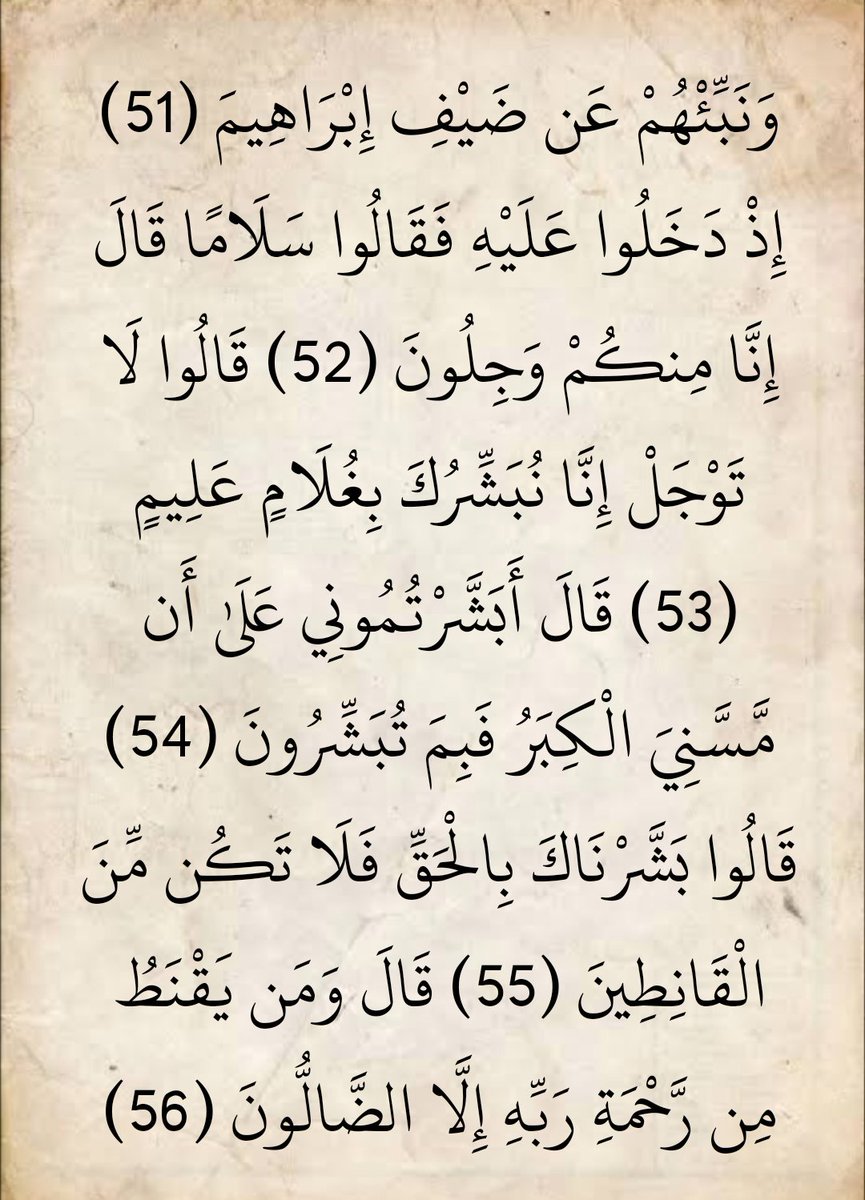 وَنَبِّئْهُمْ عَن ضَيْفِ إِبْرَاهِيمَ (51)
إِذْ دَخَلُوا عَلَيْهِ فَقَالُوا سَلَامًا قَالَ
إِنَّا مِنكُمْ وَجِلُونَ (52) قَالُوا لَا
تَوْجَلْ إِنَّا نُبَشِّرُكَ بِغُلَامٍ عَلِيمٍ
(53) قَالَ أَبَشَّرْتُمُونِي عَلَىٰ أَن
مَّسَّنِيَ الْكِبَرُ فَبِمَ تُبَشِّرُونَ (54)
قَالُوا بَشَّرْنَاكَ بِالْحَقِّ فَلَا تَكُن مِّنَ
الْقَانِطِينَ (55) قَالَ وَمَن يَقْنَطُ
مِن رَّحْمَةِ رَبِّهِ إِلَّا الضَّالُّونَ (56)